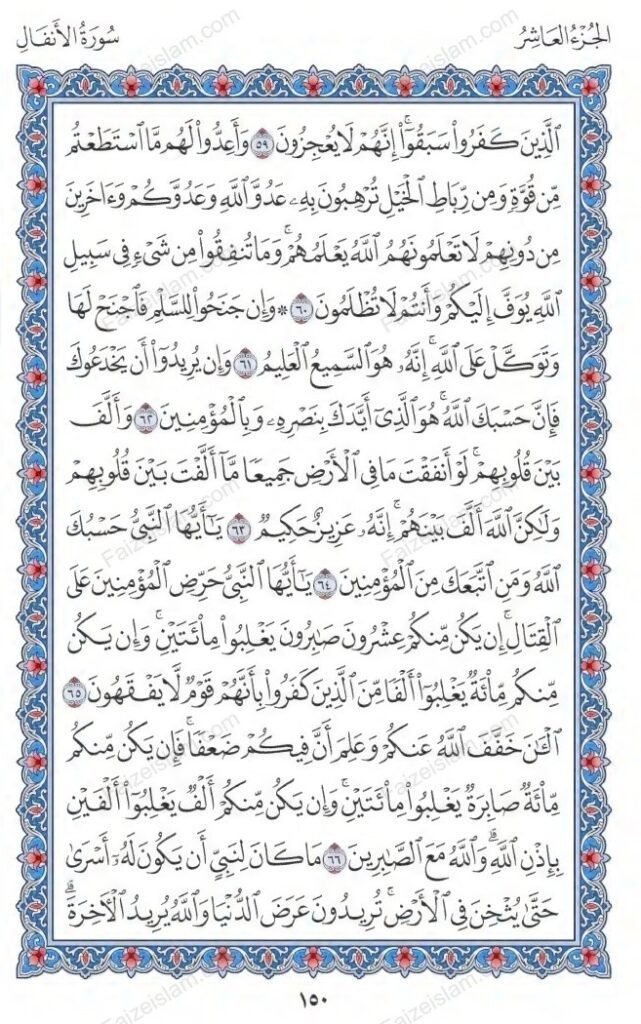 الجُزْءُ العَاشِرُ سُورَةُ الأَنفَال
ٱلَّذِينَ كَفَرُواْ سَبَقُوٓاْۚ إِنَّهُمْ لَا يُعْجِزُونَ ٥٩ وَأَعِدُّواْ لَهُم مَّا ٱسْتَطَعْتُم
مِّن قُوَّةٍ وَمِن رِّبَاطِ ٱلْخَيْلِ تُرْهِبُونَ بِهِۦ عَدُوَّ ٱللَّهِ وَعَدُوَّكُمْ وَءَاخَرِينَ
مِن دُونِهِمْ لَا تَعْلَمُونَهُمُ ٱللَّهُ يَعْلَمُهُمْۚ وَمَا تُنفِقُواْ مِن شَىْءٍ فِى سَبِيلِ
ٱللَّهِ يُوَفَّ إِلَيْكُمْ وَأَنتُمْ لَا تُظْلَمُونَ ٦٠ ۞ وَإِن جَنَحُواْ لِلسَّلْمِ فَٱجْنَحْ لَهَا
وَتَوَكَّلْ عَلَى ٱللَّهِۚ إِنَّهُۥ هُوَ ٱلسَّمِيعُ ٱلْعَلِيمُ ٦١ وَإِن يُرِيدُوٓاْ أَن يَخْدَعُوكَ
فَإِنَّ حَسْبَكَ ٱللَّهُۚ هُوَ ٱلَّذِىٓ أَيَّدَكَ بِنَصْرِهِۦ وَبِٱلْمُؤْمِنِينَ ٦٢ وَأَلَّفَ
بَيْنَ قُلُوبِهِمْۚ لَوْ أَنفَقْتَ مَا فِى ٱلْأَرْضِ جَمِيعًا مَّآ أَلَّفْتَ بَيْنَ قُلُوبِهِمْ
وَلَٰكِنَّ ٱللَّهَ أَلَّفَ بَيْنَهُمْۚ إِنَّهُۥ عَزِيزٌ حَكِيمٌ ٦٣ يَٰٓأَيُّهَا ٱلنَّبِىُّ حَسْبُكَ
ٱللَّهُ وَمَنِ ٱتَّبَعَكَ مِنَ ٱلْمُؤْمِنِينَ ٦٤ يَٰٓأَيُّهَا ٱلنَّبِىُّ حَرِّضِ ٱلْمُؤْمِنِينَ عَلَى
ٱلْقِتَالِۚ إِن يَكُن مِّنكُمْ عِشْرُونَ صَٰبِرُونَ يَغْلِبُواْ مِاْئَتَيْنِۚ وَإِن يَكُن
مِّنكُم مِّاْئَةٌ يَغْلِبُوٓاْ أَلْفًا مِّنَ ٱلَّذِينَ كَفَرُواْ بِأَنَّهُمْ قَوْمٌ لَّا يَفْقَهُونَ ٦٥
ٱلْـَٰٔنَ خَفَّفَ ٱللَّهُ عَنكُمْ وَعَلِمَ أَنَّ فِيكُمْ ضَعْفًاۚ فَإِن يَكُن مِّنكُم
مِّاْئَةٌ صَابِرَةٌ يَغْلِبُواْ مِاْئَتَيْنِۚ وَإِن يَكُن مِّنكُمْ أَلْفٌ يَغْلِبُوٓاْ أَلْفَيْنِ
بِإِذْنِ ٱللَّهِۗ وَٱللَّهُ مَعَ ٱلصَّٰبِرِينَ ٦٦ مَا كَانَ لِنَبِىٍّ أَن يَكُونَ لَهُۥٓ أَسْرَىٰ
حَتَّىٰ يُثْخِنَ فِى ٱلْأَرْضِۚ تُرِيدُونَ عَرَضَ ٱلدُّنْيَا وَٱللَّهُ يُرِيدُ ٱلْأَخِرَةَۗ
١٥٠
Faizeislam.com